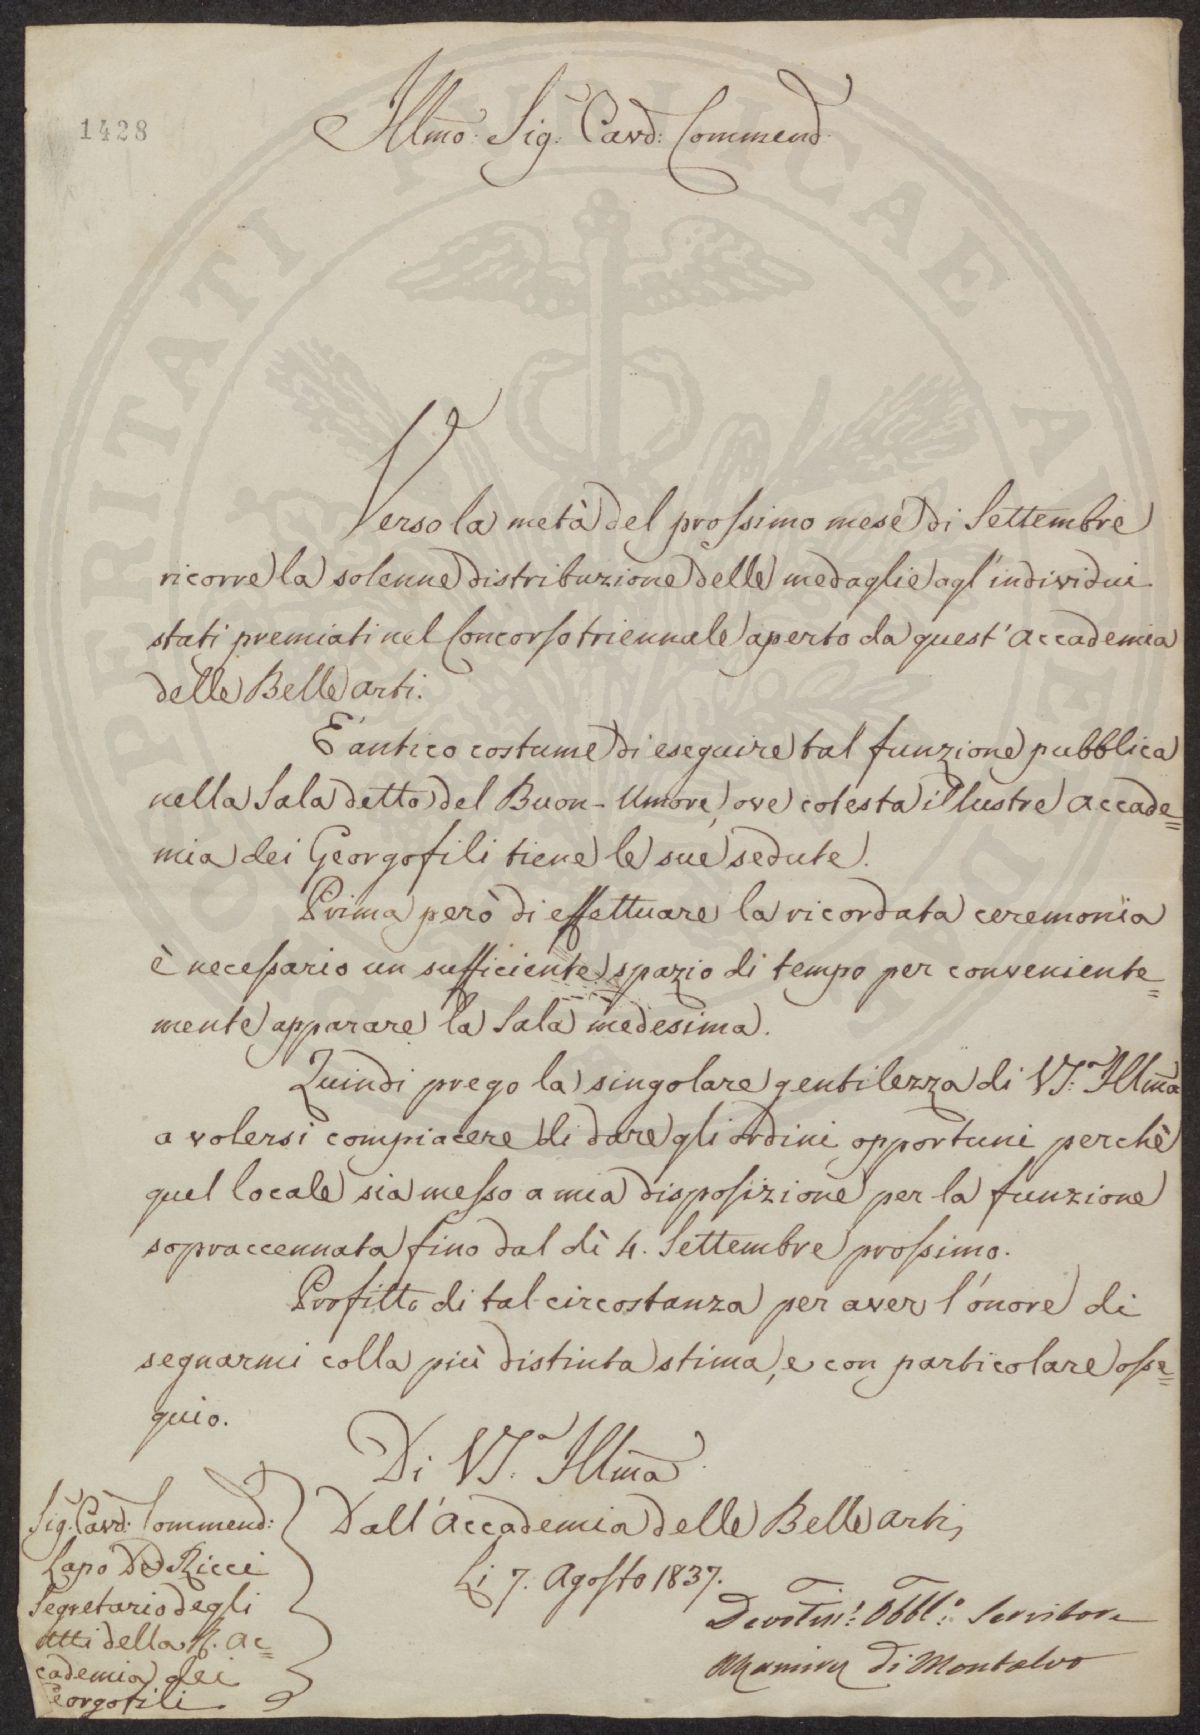 1428
Illmo: Sig: Cavd: Commend:
Verso la metà del prossimo mese di Settembre
ricorre la solenne distribuzione delle medaglie agl'individui
stati premiati nel Concorso triennale aperto da quest'Accademia
delle Belle Arti.
É antico costume di eseguire tal funzione pubblica
nella Sala detta del Buon-Umore, ove cotesta illustre Accade=
mia dei Georgofili tiene le sue sedute.
Prima però di effettuare la ricordata ceremonia
è necessario un sufficiente spazio di tempo per conveniente=
mente apparare la Sala medesima.
Quindi prego la singolare gentilezza di VS: Illma
a volersi compiacere di dare gli ordini opportuni perchè
quel locale sia messo a mia disposizione per la funzione
sopraccennata fino dal dì 4. Settembre prossimo.
Profitto di tal circostanza per aver l'onore di
segnarmi colla più distinta stima, e con particolare osse=
quio.
Di VS: Illma
Dall'Accademia delle Belle Arti,
Li 7. Agosto 1837.
Sig: Cavd: Commend:
Lapo De Ricci
Segretario degli
Atti della R. Ac=
cademia dei
Georgofili
Devotm: Obbl: Servitore
di Montalvo
PROSPERITATI PUBLICAE AUGENDAE